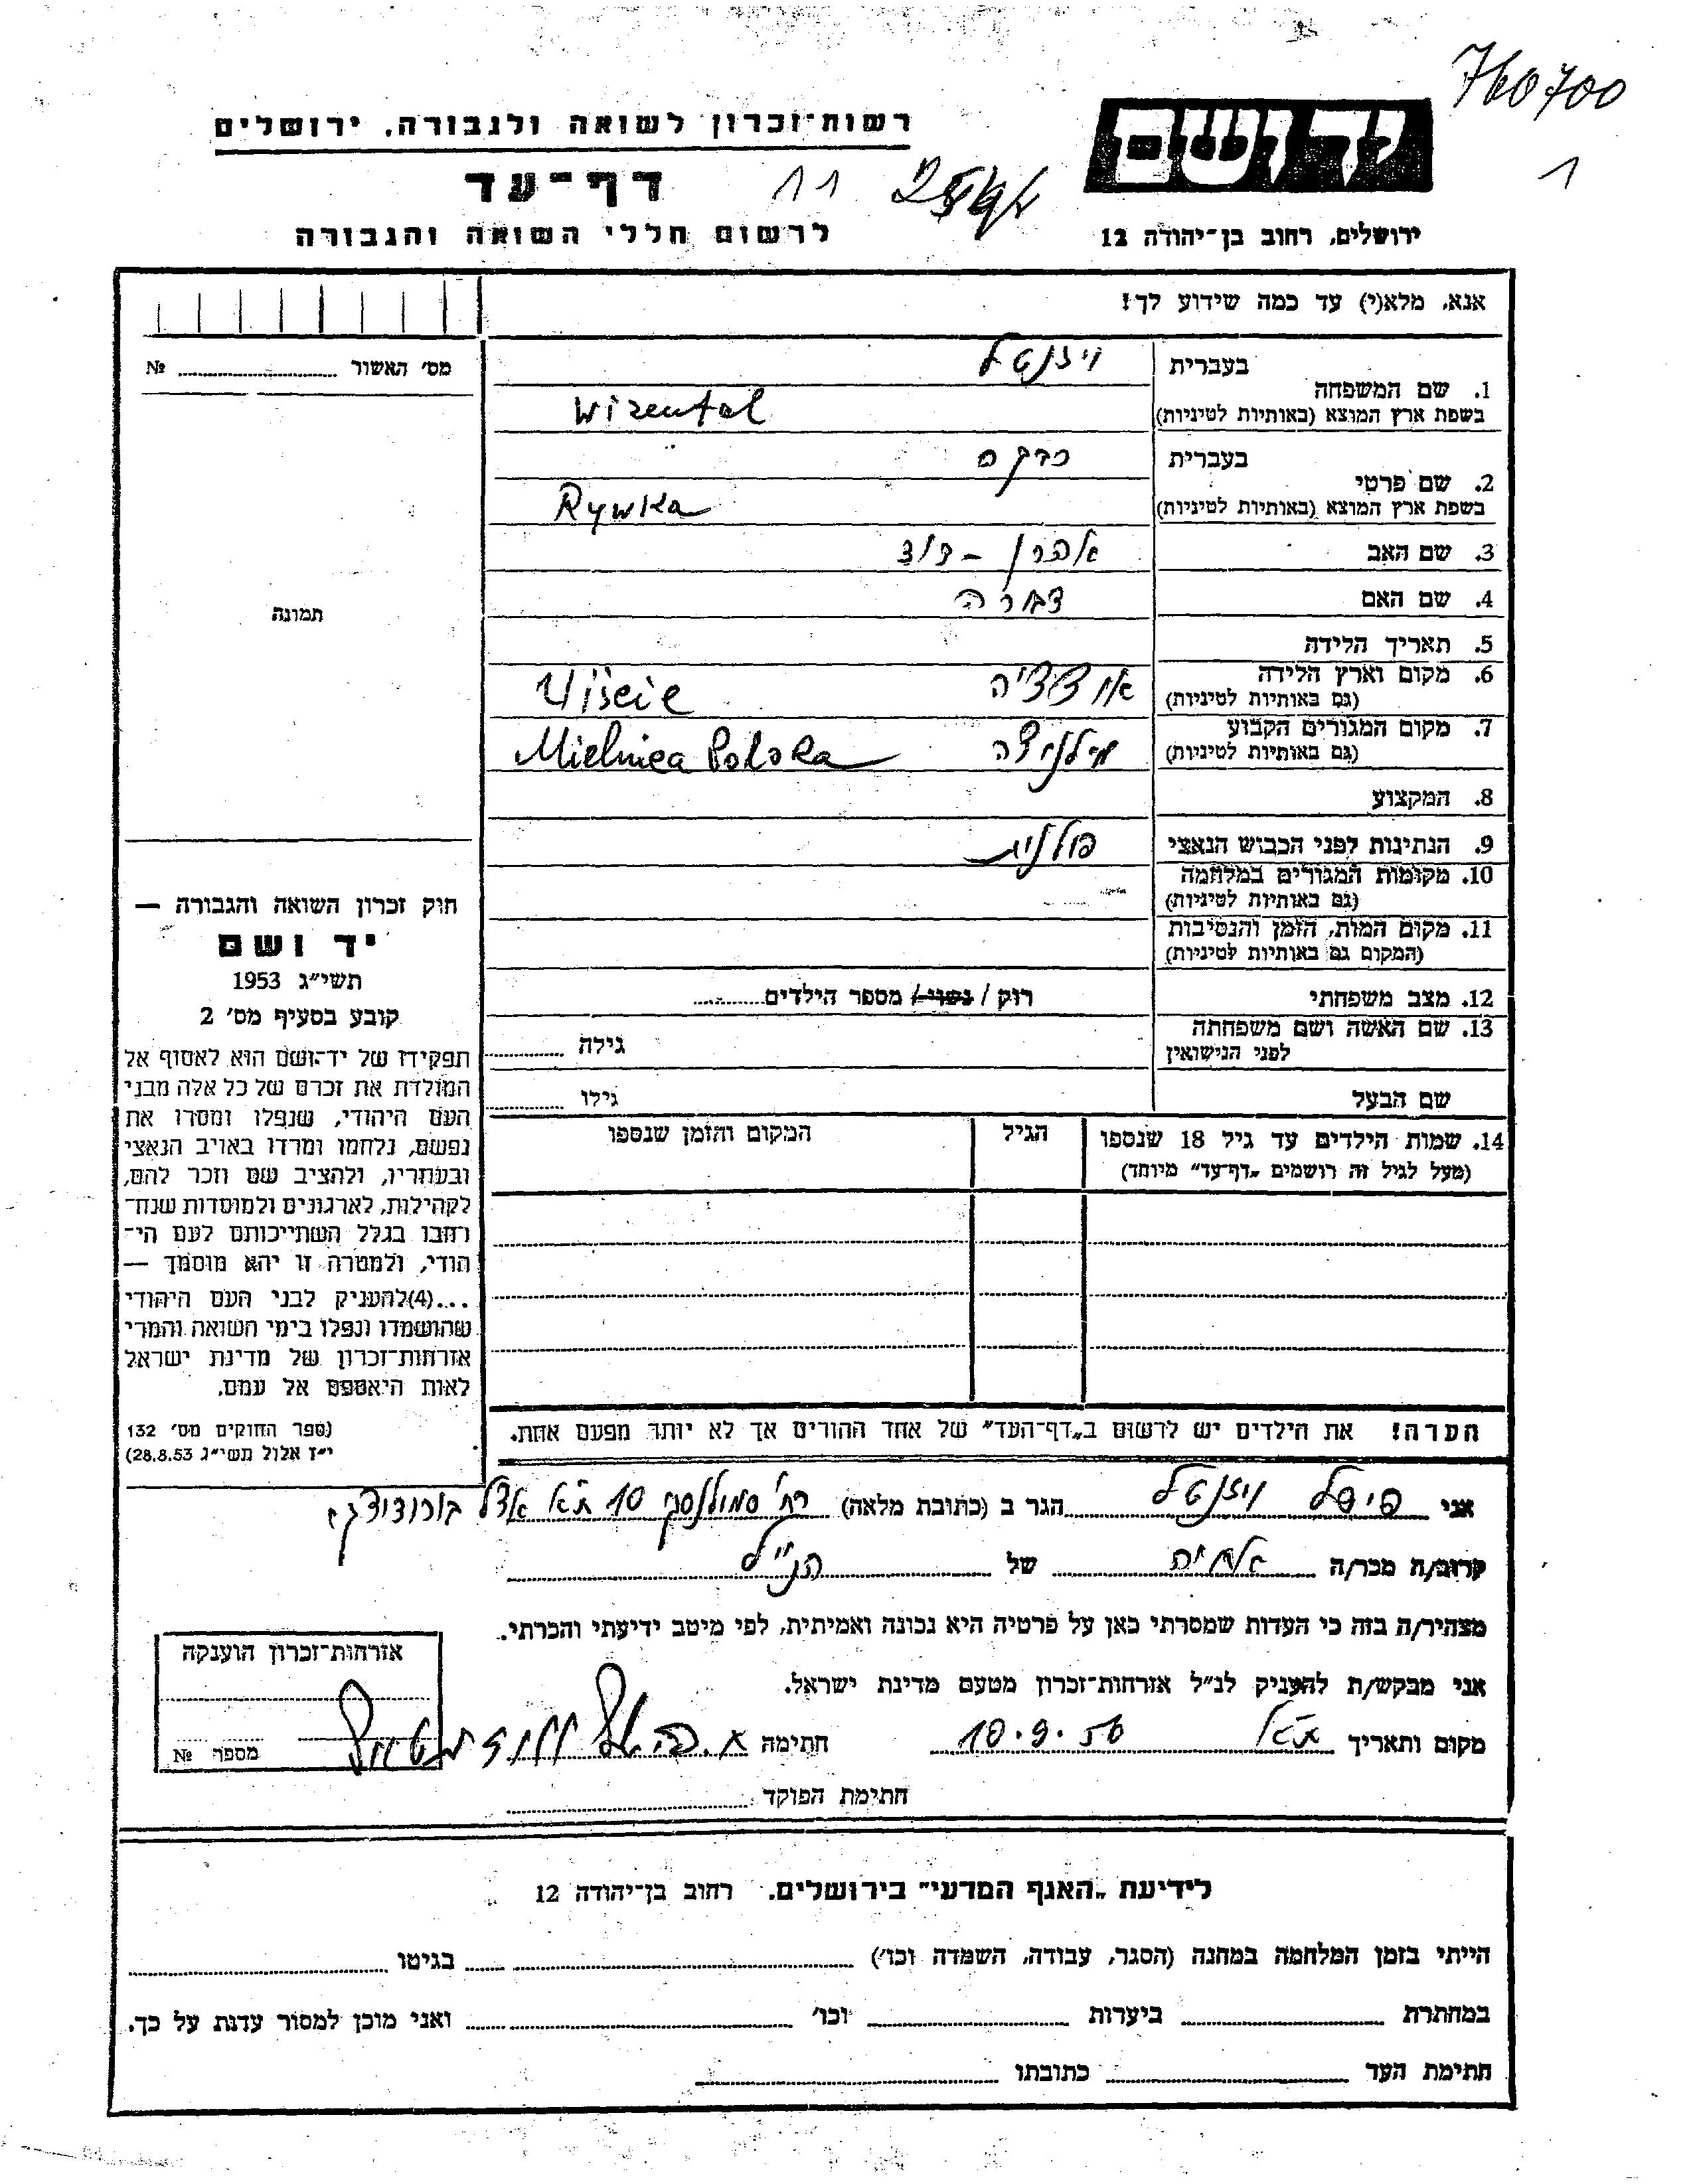 760700
רשות־זכרון לשואה ולגבורה, ירושלים
ידושם
1
דף־עד
11
לרשום חללי השואה והגבורה
ירושלים, רחוב בן־יהודה 12
אנא, מלא(י) עד כמה שידוע לך!
מס' האשור № 
1. שם המשפחה
בעברית ויזנטל
בשפת ארץ המוצא (באותיות לטיניות) Wizental
2. שם פרטי
בעברית רבקה
בשפת ארץ המוצא (באותיות לטיניות) Rywka
3. שם האב אהרן - דוד
4. שם האם דבורה
5. תאריך הלידה
6. מקום וארץ הלידה
(גם באותיות לטיניות) Uście
7. מקום המגורים הקבוע
(גם באותיות לטיניות) מילניצה Mielnica Polska
8. המקצוע
9. הנתינות לפני הכבוש הנאצי פולנית
10. מקומות המגורים במלחמה
(גם באותיות לטיניות)
11. מקום המות, הזמן והנסיבות
(המקום גם באותיות לטיניות)
12. מצב משפחתי רוק / נשוי / מספר הילדים
13. שם האשה ושם משפחתה
לפני הנישואין גילה
שם הבעל גילו
14. שמות הילדים עד גיל 18 שנספו הגיל המקום והזמן שנספו
(מעל לגיל זה רושמים „דף־עד" מיוחד)
תמונה
חוק זכרון השואה והגבורה —
יד ושם
תשי"ג 1953
קובע בסעיף מס' 2
תפקידו של יד־ושם הוא לאסוף אל
המולדת את זכרם של כל אלה מבני
העם היהודי, שנפלו ומסרו את
נפשם, נלחמו ומרדו באויב הנאצי
ובעוזריו, ולהציב שם וזכר להם,
לקהילות, לארגונים ולמוסדות שנח־
רבו בגלל השתייכותם לעם הי־
הודי, ולמטרה זו יהא מוסמך —
...(4)להעניק לבני העם היהודי
שהושמדו ונפלו בימי השואה והמרי
אזרחות־זכרון של מדינת ישראל
לאות היאספם אל עמם.
(ספר החוקים מס' 132
י"ז אלול תשי"ג 28.8.53)
הערה! את הילדים יש לרשום ב„דף־העד" של אחד ההורים אך לא יותר מפעם אחת.
אני פישל ויזנטל הגר ב (כתובת מלאה) רח' סמולנסקין 10 ת"א אצל
קרוב/ה מכר/ה של הנ"ל
מצהיר/ה בזה כי העדות שמסרתי כאן על פרטיה היא נכונה ואמיתית, לפי מיטב ידיעתי והכרתי.
אני מבקש/ת להעניק לנ"ל אזרחות־זכרון מטעם מדינת ישראל.
מקום ותאריך ת"א 10.9.56 חתימה
אזרחות־זכרון הוענקה
מספר №
חתימת הפוקד
לידיעת „האגף המדעי" בירושלים. רחוב בן־יהודה 12
הייתי בזמן המלחמה במחנה (הסגר, עבודה, השמדה וכו') בגיטו
במחתרת ביערות וכו' ואני מוכן למסור עדות על כך.
חתימת העד כתובתו